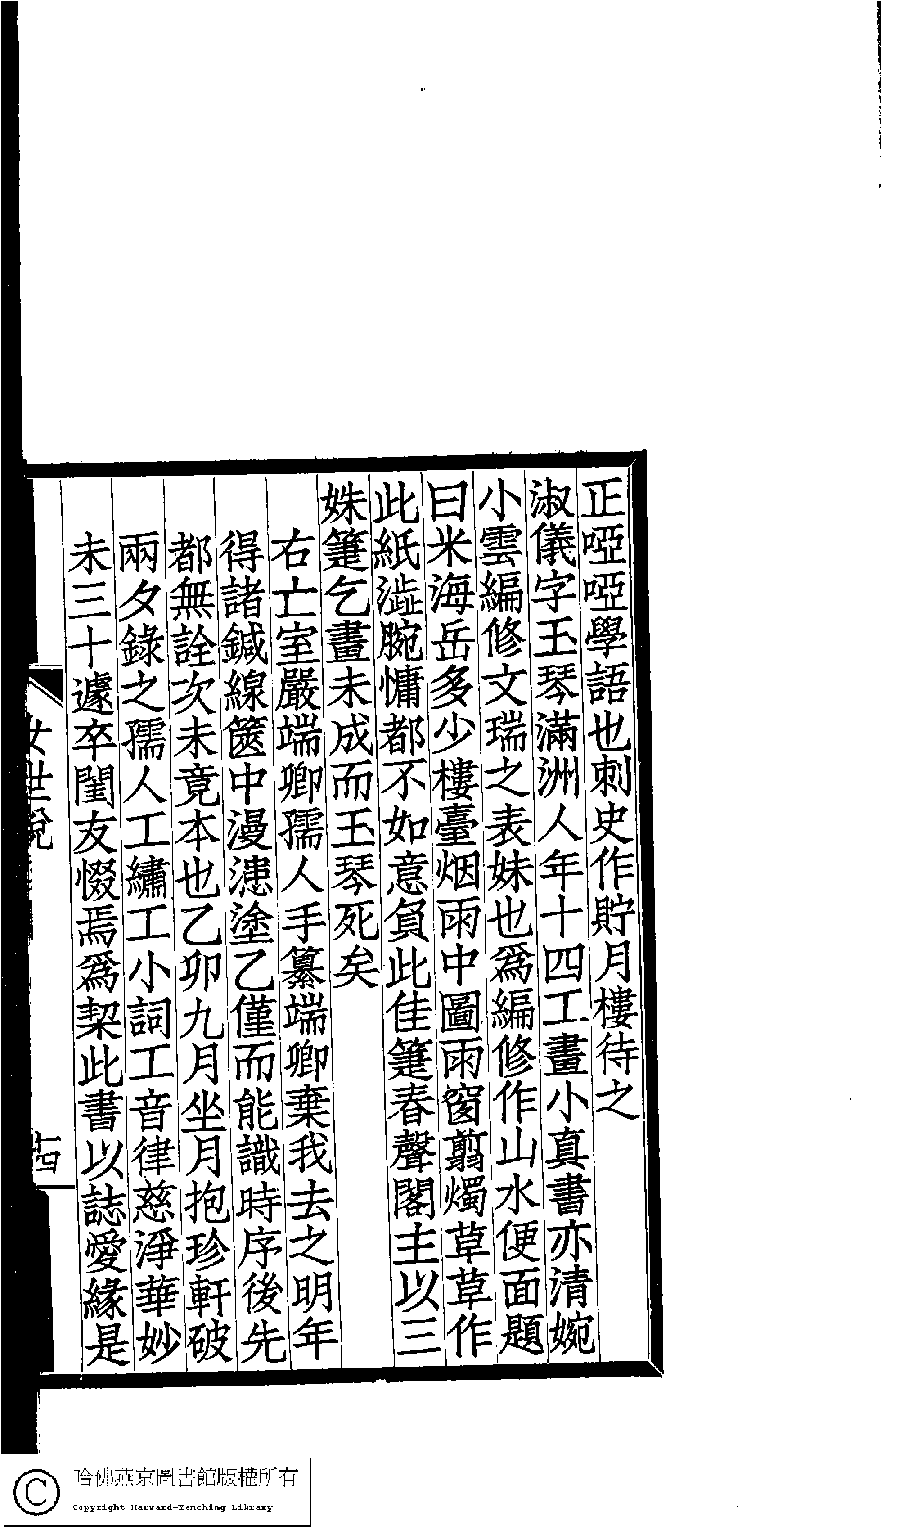 正啞啞學語也刺史作貯月樓待之
淑儀字玉琴滿洲人年十四工畫小真書亦清婉
小雲編修文瑞之表妹也爲編修作山水便面題
曰米海岳多少樓臺烟雨中圖雨窗翦燭草草作
此紙澁腕慵都不如意負此佳箑春聲閣主以三
姝箑乞畫未成而玉琴死矣
右亡室嚴端卿孺人手纂端卿棄我去之明年
得諸鍼線篋中漫漶塗乙僅而能識時序後先
都無詮次未竟本也乙卯九月坐月抱珍軒破
兩夕錄之孺人工繡工小詞工音律慈淨華妙
未三十遽卒閨友惙焉爲栔此書以誌愛緣是
女世說
十四
哈佛燕京圖書館版權所有
Copyright Harvard-Yenching Library